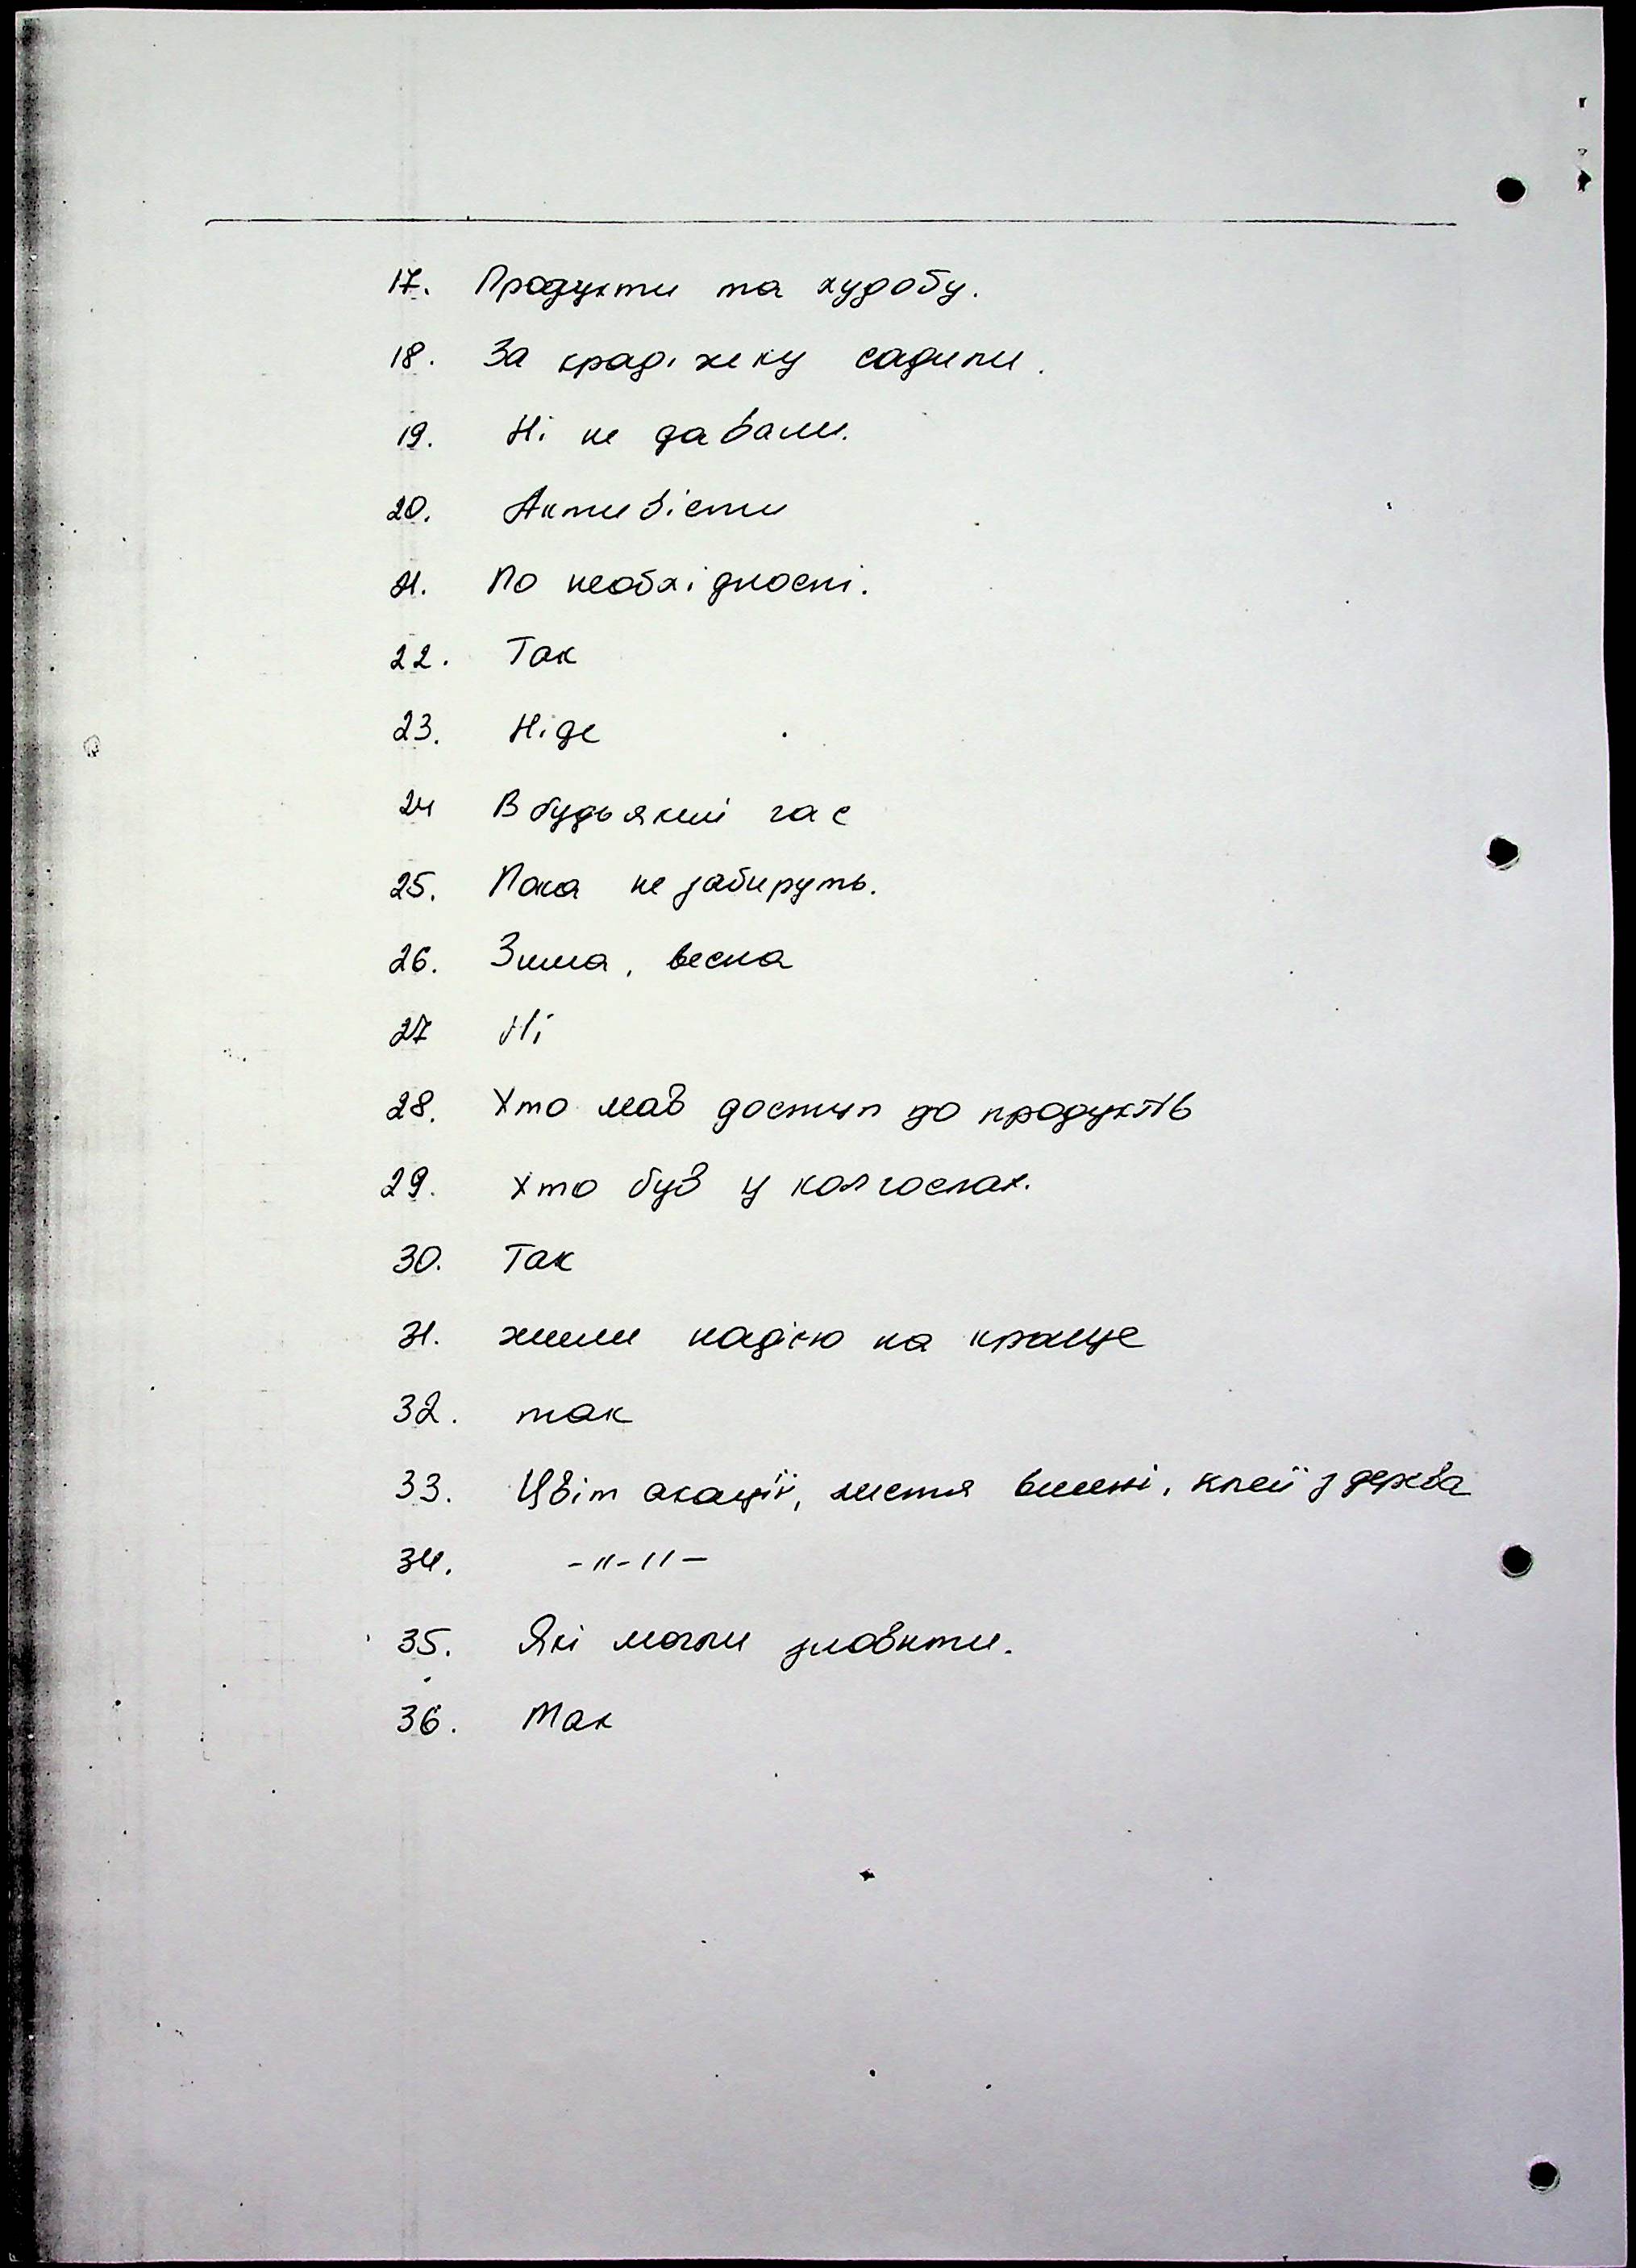 17. Продукти та худобу.
18. За крадіжку садили.
19. Ні не давали.
20. Активісти
21. По необхідності.
22. Так
23. Ніде
24 В будьякий час
25. Пока не забируть.
26. Зима, весна
27 Ні
28. Хто мав доступ до продуктів
29. Хто був у колгоспах.
30. Так
31. жили надією на краще
32. так
33. Цвіт акації, листя вишні, клей з дерева
34. -"-"-
35. Які могли зловити.
36. Так